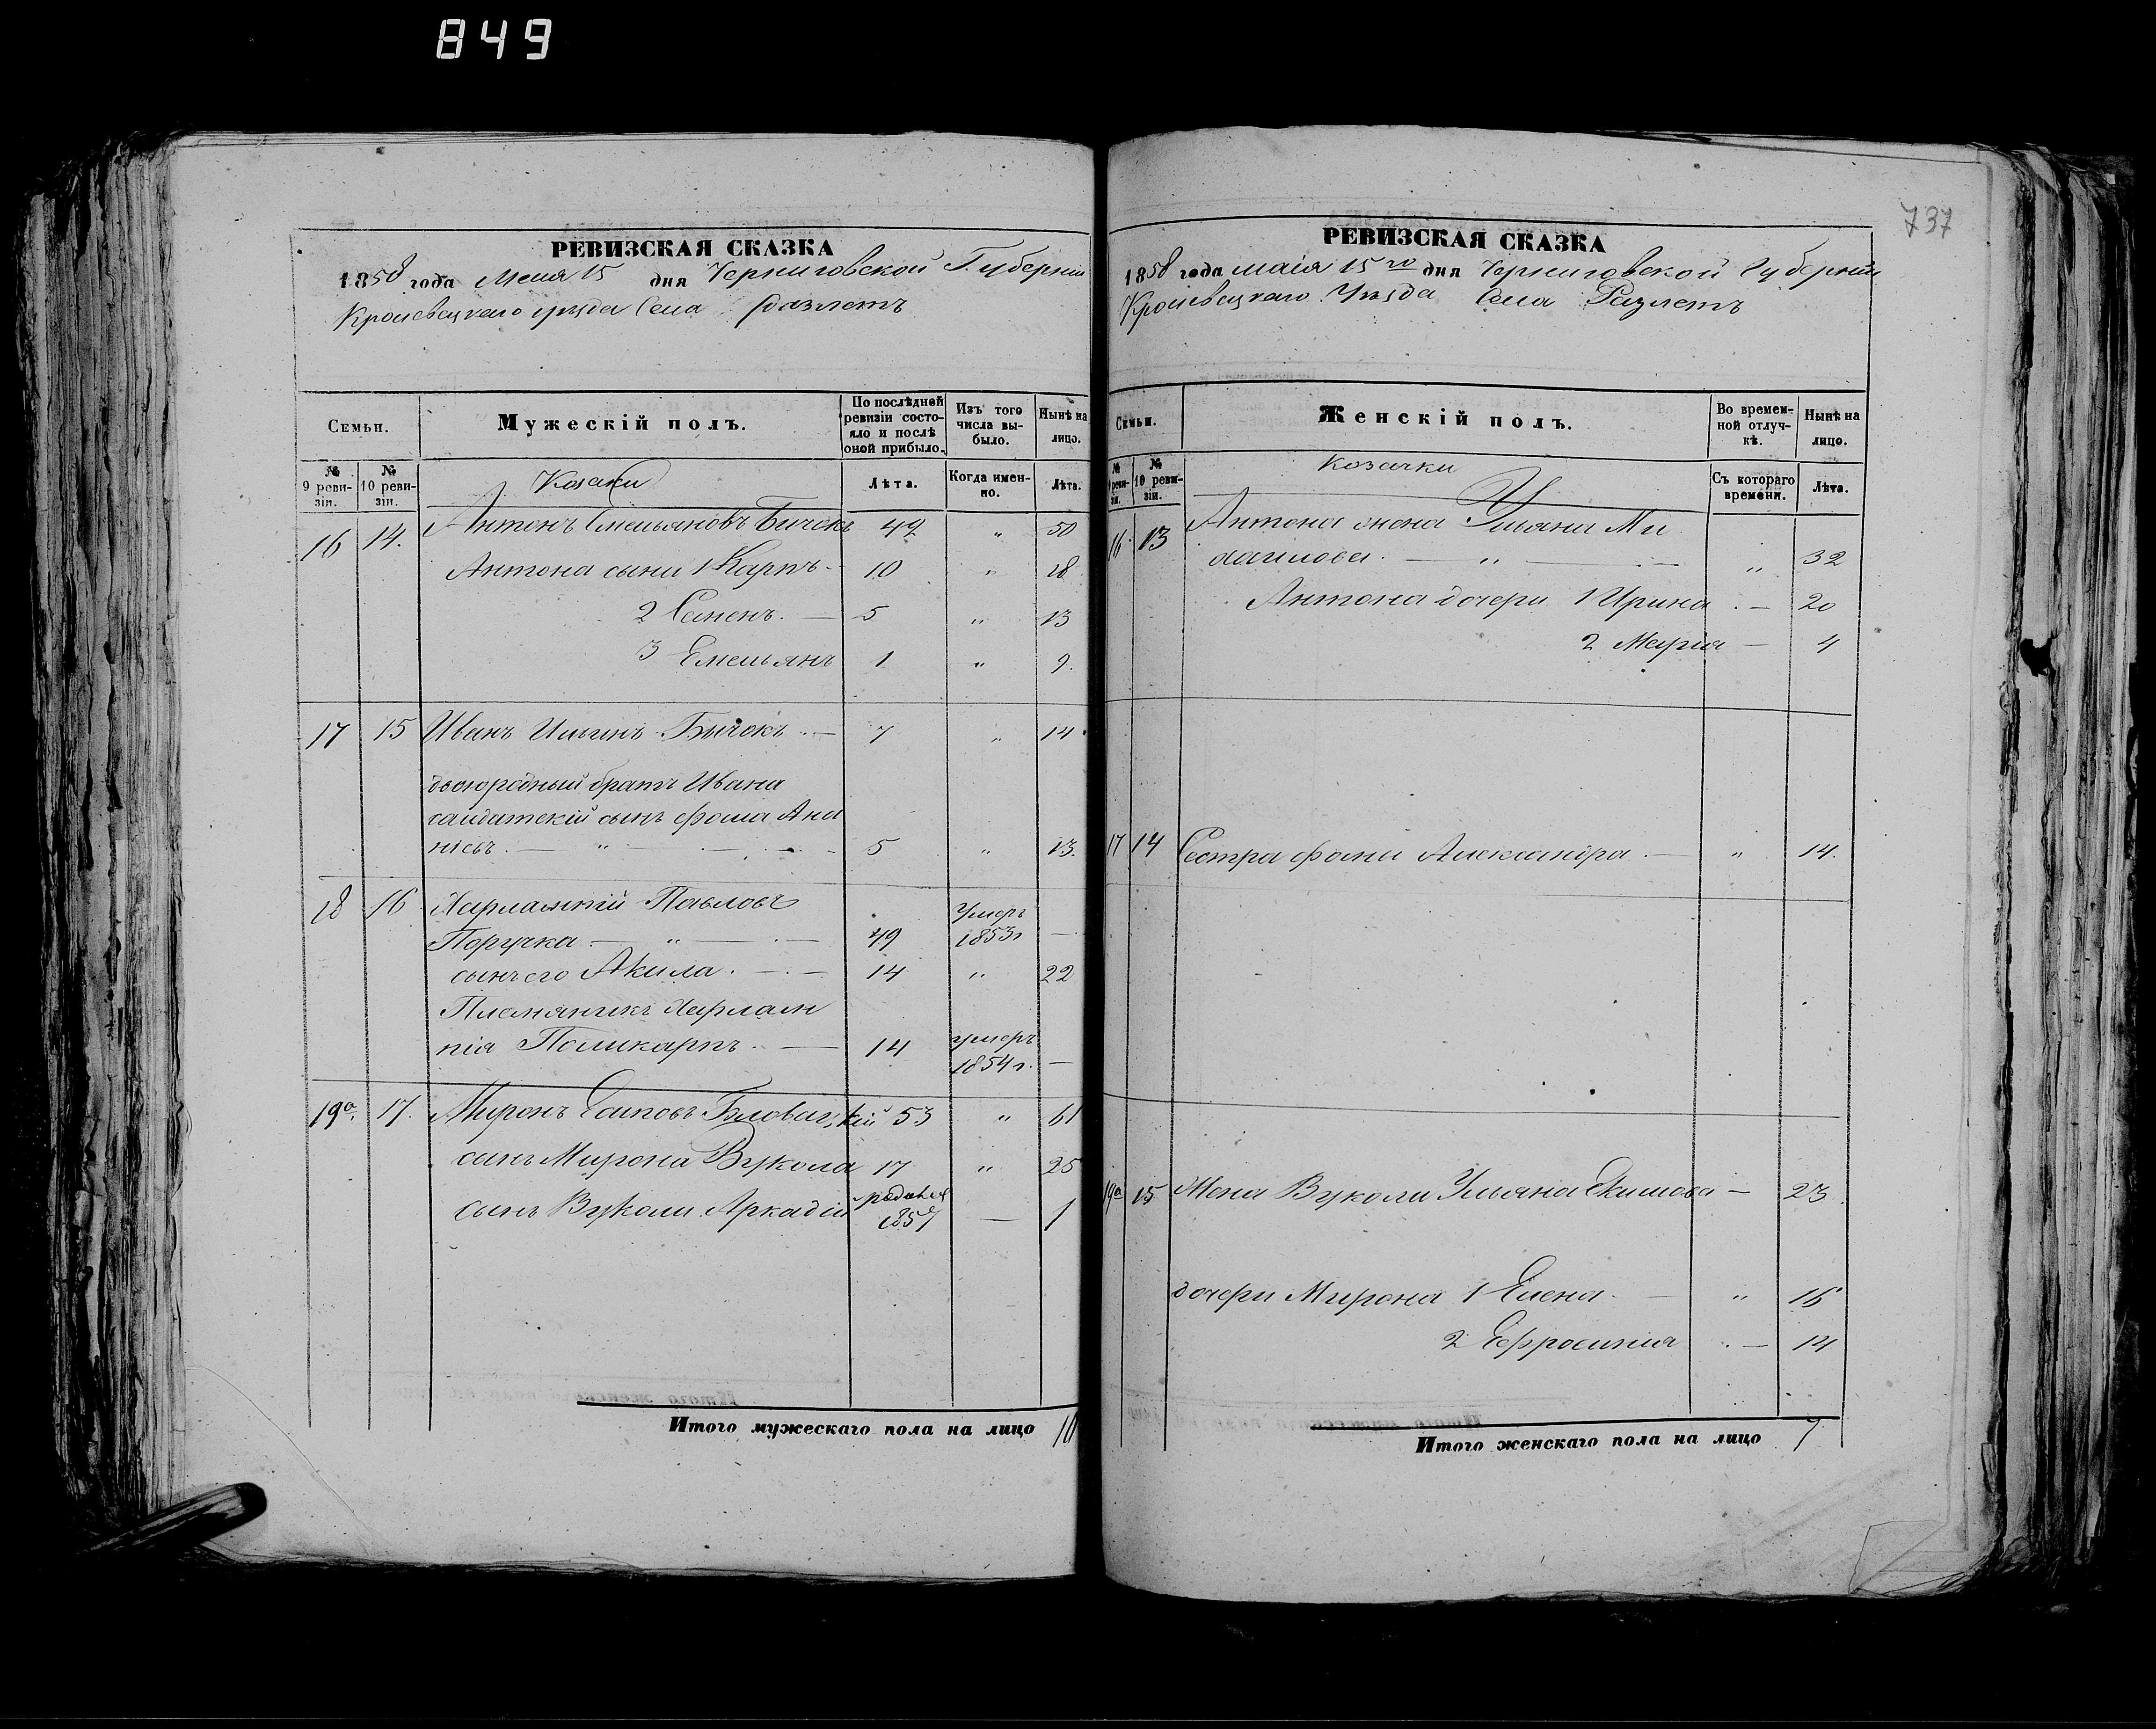 849
737
РЕВИЗСКАЯ СКАЗКА
1858 года Маия 15 дня Черниговской Губерніи
Кролевецкаго уѣзда Села Разлетъ
Семьи.
Мужескій полъ.
По послѣдней ревизіи состояло и послѣ оной прибыло.
Изъ того числа выбыло.
Нынѣ на лицо.
№ 9 ревизіи.
№ 10 ревизіи.
Козаки
Лѣта.
Когда именно.
Лѣта.
16 14. Антонъ Емельяновъ Бычокъ 42 " 50
Антона сыны 1 Карпъ 10 " 18
2 Семенъ. — 5 " 13
3 Емельянъ 1 " 9.
17 15 Иванъ Ильинъ Бычокъ — 7 " 14
двоюродный братъ Ивана
салдатскій сынъ Фома Ана
ніевъ. — " — 5 " 13.
18 16 Харлампій Павловъ
Поручка — " — 49 Умеръ 1853г —
сынъ его Акила. — 14 " 22
Племяникъ Харлам
пія Поликарпъ. — 14 умеръ 1854г. —
19а. 17. Миронъ Есиповъ Бѣловацкій 53 " 61
сынъ Мирона Вукола 17 " 25
сынъ Вуколы Аркадій родился 1857 — 1
Итого мужескаго пола на лицо 10
РЕВИЗСКАЯ СКАЗКА
1858 года маія 15го дня Черниговской Губерніи
Кролевецкаго Уѣзда Села Разлетъ
Семьи.
Женскій полъ.
Во временной отлучкѣ.
Нынѣ на лицо.
№ 9 ревизіи.
№ 10 ревизіи.
Козачки
Съ котораго времени.
Лѣта.
16 13 Антона жена Ульяна Ми
хаилова. — " — " 32
Антона дочери 1 Ирина — 20
2 Марія — 4
17 14 Сестра Фомы Александра. — " 14.
19а 15 Жена Вуколы Ульяна Екимова — 23
дочери Мирона 1 Елена. — " 16
2 Ефросинія — 14
Итого женскаго пола на лицо 7